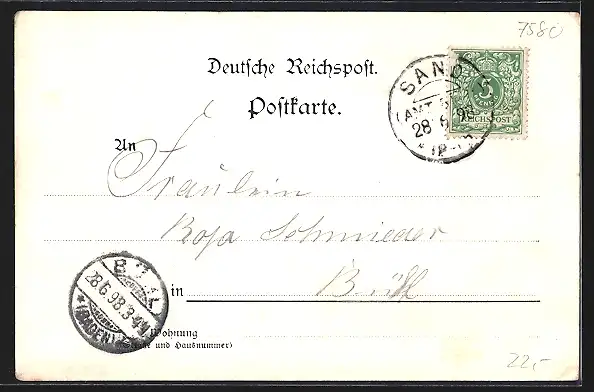 7580
Deutsche Reichspost.
Postkarte.
SAND
(AMT B
28 6 98
5
REICHSPOST
An
Fräulein
Rosa Schmieder
in Bühl
BÜHL
28.6.98.3-4N
*(BADEN)
Wohnung
(Straße und Hausnummer)
22,-